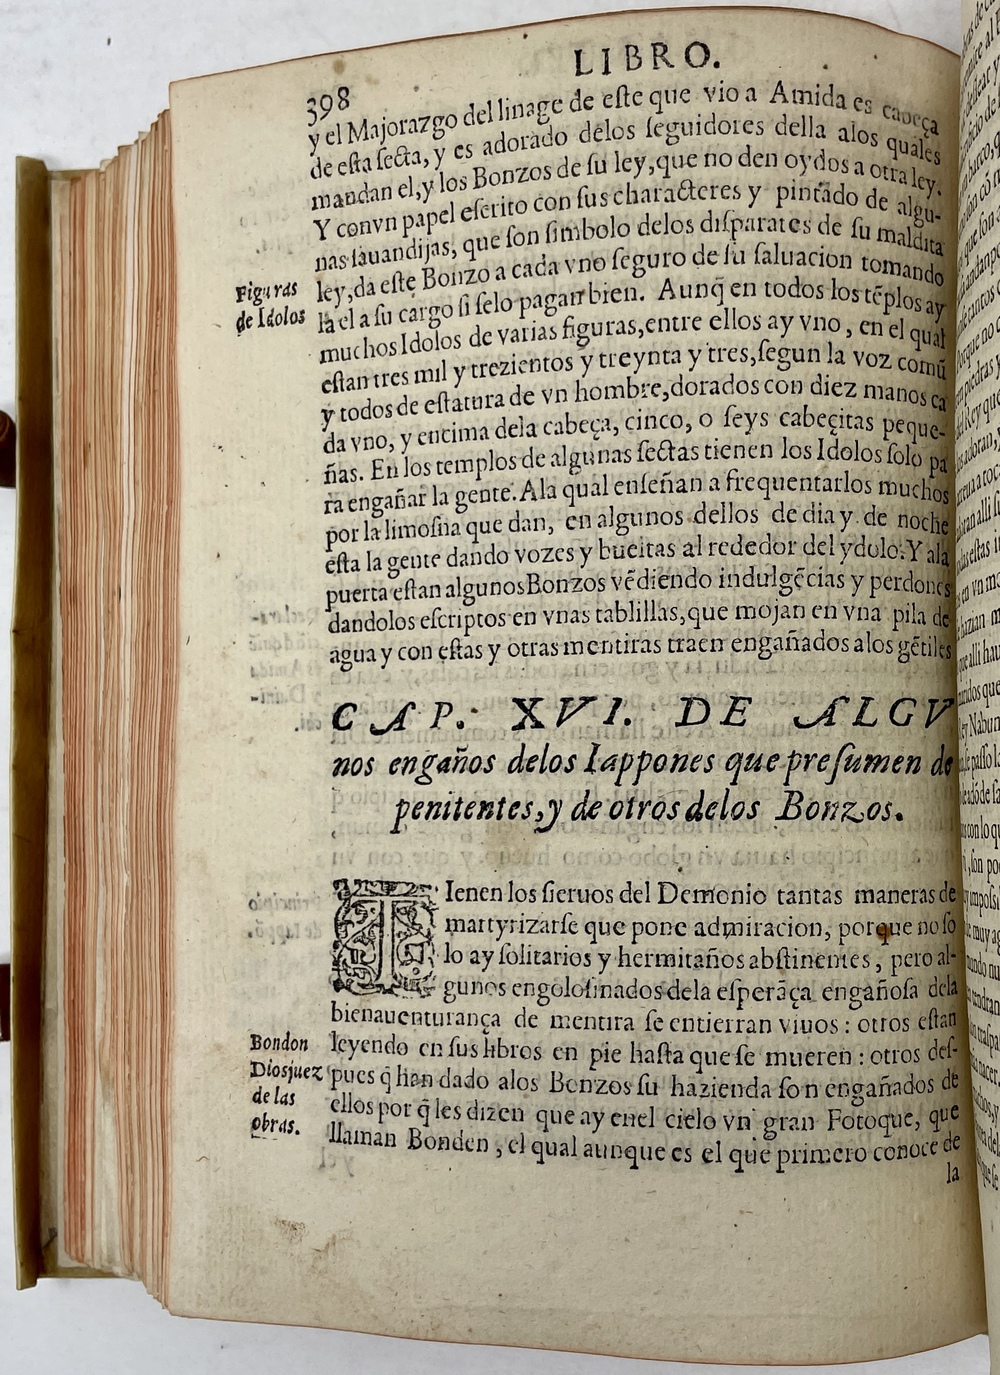 398
LIBRO.
y el Majorazgo del linage de este que vio a Amida es cabeça
de esta secta, y es adorado delos seguidores della alos quales
mandan el, y los Bonzos de su ley, que no den oydos a otra ley.
Y convn papel escrito con sus characteres y pintado de algu-
nas sauandijas, que son simbolo delos disparates de su maldita
Figuras
de Idolos
ley, da este Bonzo a cada vno seguro de su saluacion tomando
la el a su cargo si selo pagan bien. Aunq̃ en todos los tẽplos ay
muchos Idolos de varias figuras, entre ellos ay vno, en el qual
estan tres mil y trezientos y treynta y tres, segun la voz comũ
y todos de estatura de vn hombre, dorados con diez manos ca
da vno, y encima dela cabeça, cinco, o seys cabeçitas peque-
ñas. En los templos de algunas sectas tienen los Idolos solo pa
ra engañar la gente. A la qual enseñan a frequentarlos muchos
por la limosna que dan, en algunos dellos de dia y de noche
esta la gente dando vozes y bueltas al rededor del ydolo. Y ala
puerta estan algunos Bonzos vẽdiendo indulgẽcias y perdones
dandolos escriptos en vnas tablillas, que mojan en vna pila de
agua y con estas y otras mentiras traen engañados alos gẽtiles
CAP. XVI. DE ALGV
nos engaños delos Iappones que presumen de
penitentes, y de otros delos Bonzos.
TIenen los sieruos del Demonio tantas maneras de
martyrizarse que pone admiracion, porque no so
lo ay solitarios y hermitaños abstinentes, pero al-
gunos engolosinados dela esperãça engañosa dela
bienauenturança de mentira se entierran viuos: otros estan
Bondon
Dios juez
de las
obras.
leyendo en sus libros en pie hasta que se mueren: otros des-
pues q̃ han dado alos Bonzos su hazienda son engañados de
ellos por q̃ les dizen que ay enel cielo vn gran Fotoque, que
llaman Bonden, el qual aunque es el que primero conoce de
la